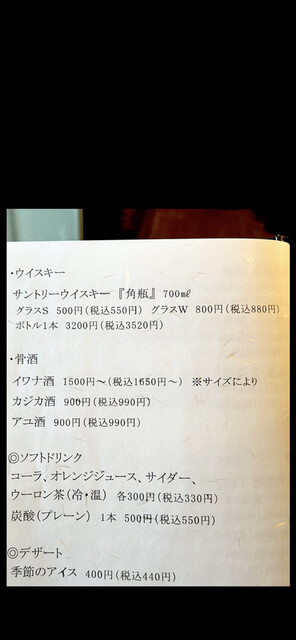 ・ウイスキー
サントリーウイスキー『角瓶』700㎖
グラスS 500円(税込550円) グラスW 800円(税込880円)
ボトル1本 3200円(税込3520円)
・骨酒
イワナ酒 1500円～(税込1650円～) ※サイズにより
カジカ酒 900円(税込990円)
アユ酒 900円(税込990円)
◎ソフトドリンク
コーラ、オレンジジュース、サイダー、
ウーロン茶(冷・温) 各300円(税込330円)
炭酸(プレーン) 1本 500円(税込550円)
◎デザート
季節のアイス 400円(税込440円)